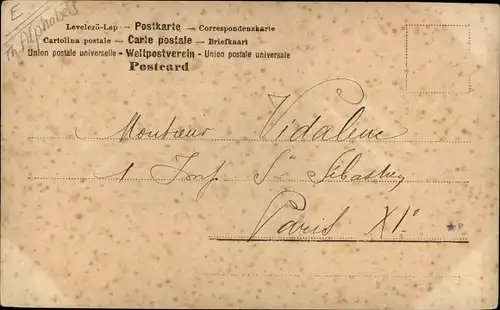 E
Th. Alphabets
Levelező-Lap — Postkarte — Correspondenzkarte
Cartolina postale — Carte postale — Briefkaart
Union postale universelle - Weltpostverein - Union postale universale
Postcard
Monsieur Vidalenc
1 Imp. St Sébastien
Paris XIe